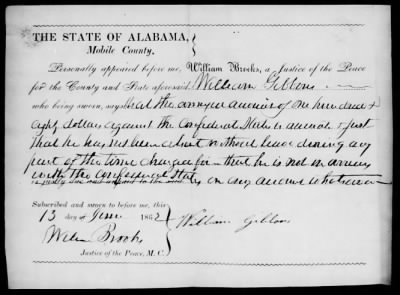 THE STATE OF ALABAMA,
Mobile County.
Personally appeared before me, William Brooks, a Justice of the Peace
for the County and State aforesaid William Gibbons
who being sworn, says that the annexed account of one hundred &
eighty dollars against the Confederate States is accurate & just
that he has not been absent without leave during any
part of the time charged for – that he is not in arrears
with the Confederate States on any account whatsoever
is justly due and
Subscribed and sworn to before me, this
13 day of June 1862
William Gibbons
Wm Brooks
Justice of the Peace, M. C.